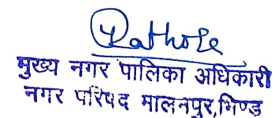 Rathore
मुख्य नगर पालिका अधिकारी
नगर परिषद मालनपुर,भिण्ड